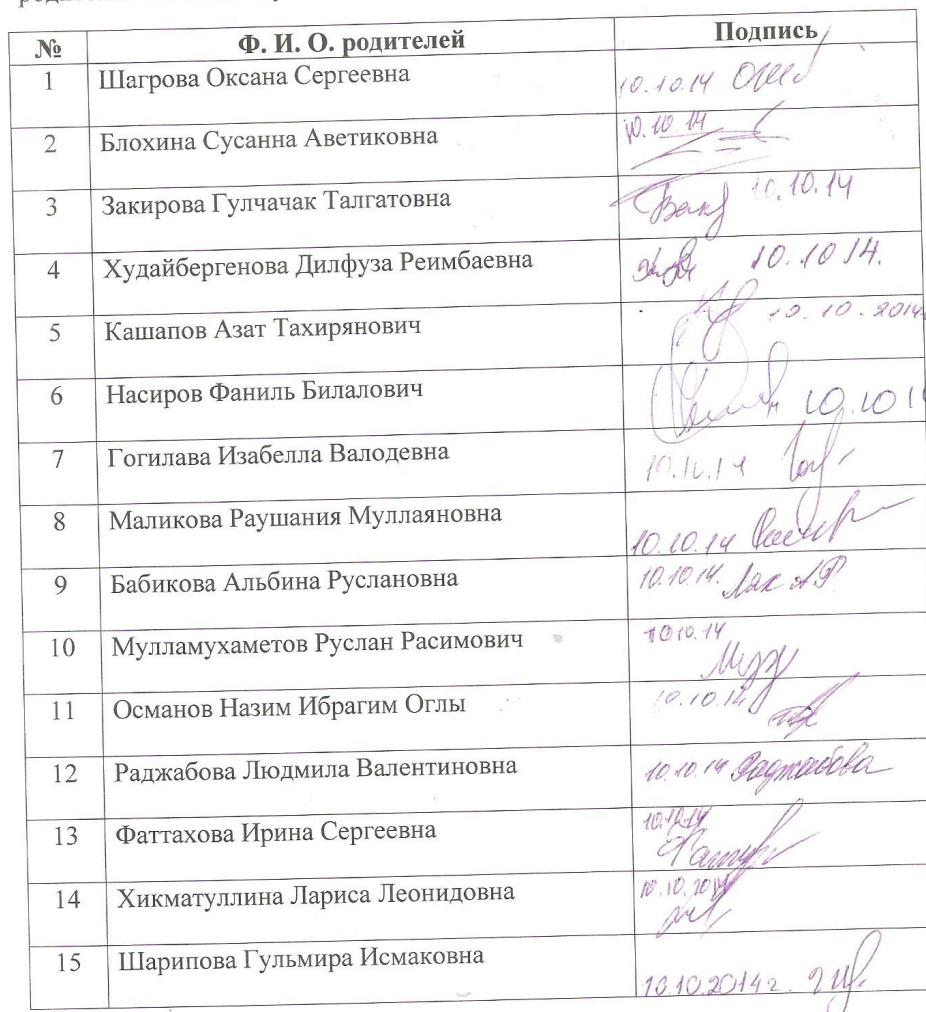 № Ф. И. О. родителей Подпись
1 Шагрова Оксана Сергеевна 10.10.14
2 Блохина Сусанна Аветиковна 10.10.14
3 Закирова Гулчачак Талгатовна 10.10.14
4 Худайбергенова Дилфуза Реимбаевна 10.10.14.
5 Кашапов Азат Тахирянович 10.10.2014
6 Насиров Фаниль Билалович 10.10.1
7 Гогилава Изабелла Валодевна 10.10.14
8 Маликова Раушания Муллаяновна 10.10.14
9 Бабикова Альбина Руслановна 10.10.14.
10 Мулламухаметов Руслан Расимович 1010.14
11 Османов Назим Ибрагим Оглы 10.10.14
12 Раджабова Людмила Валентиновна 10.10.14 Раджабова
13 Фаттахова Ирина Сергеевна 10.10.14
14 Хикматуллина Лариса Леонидовна 10.10.2014
15 Шарипова Гульмира Исмаковна 10.10.2014г.